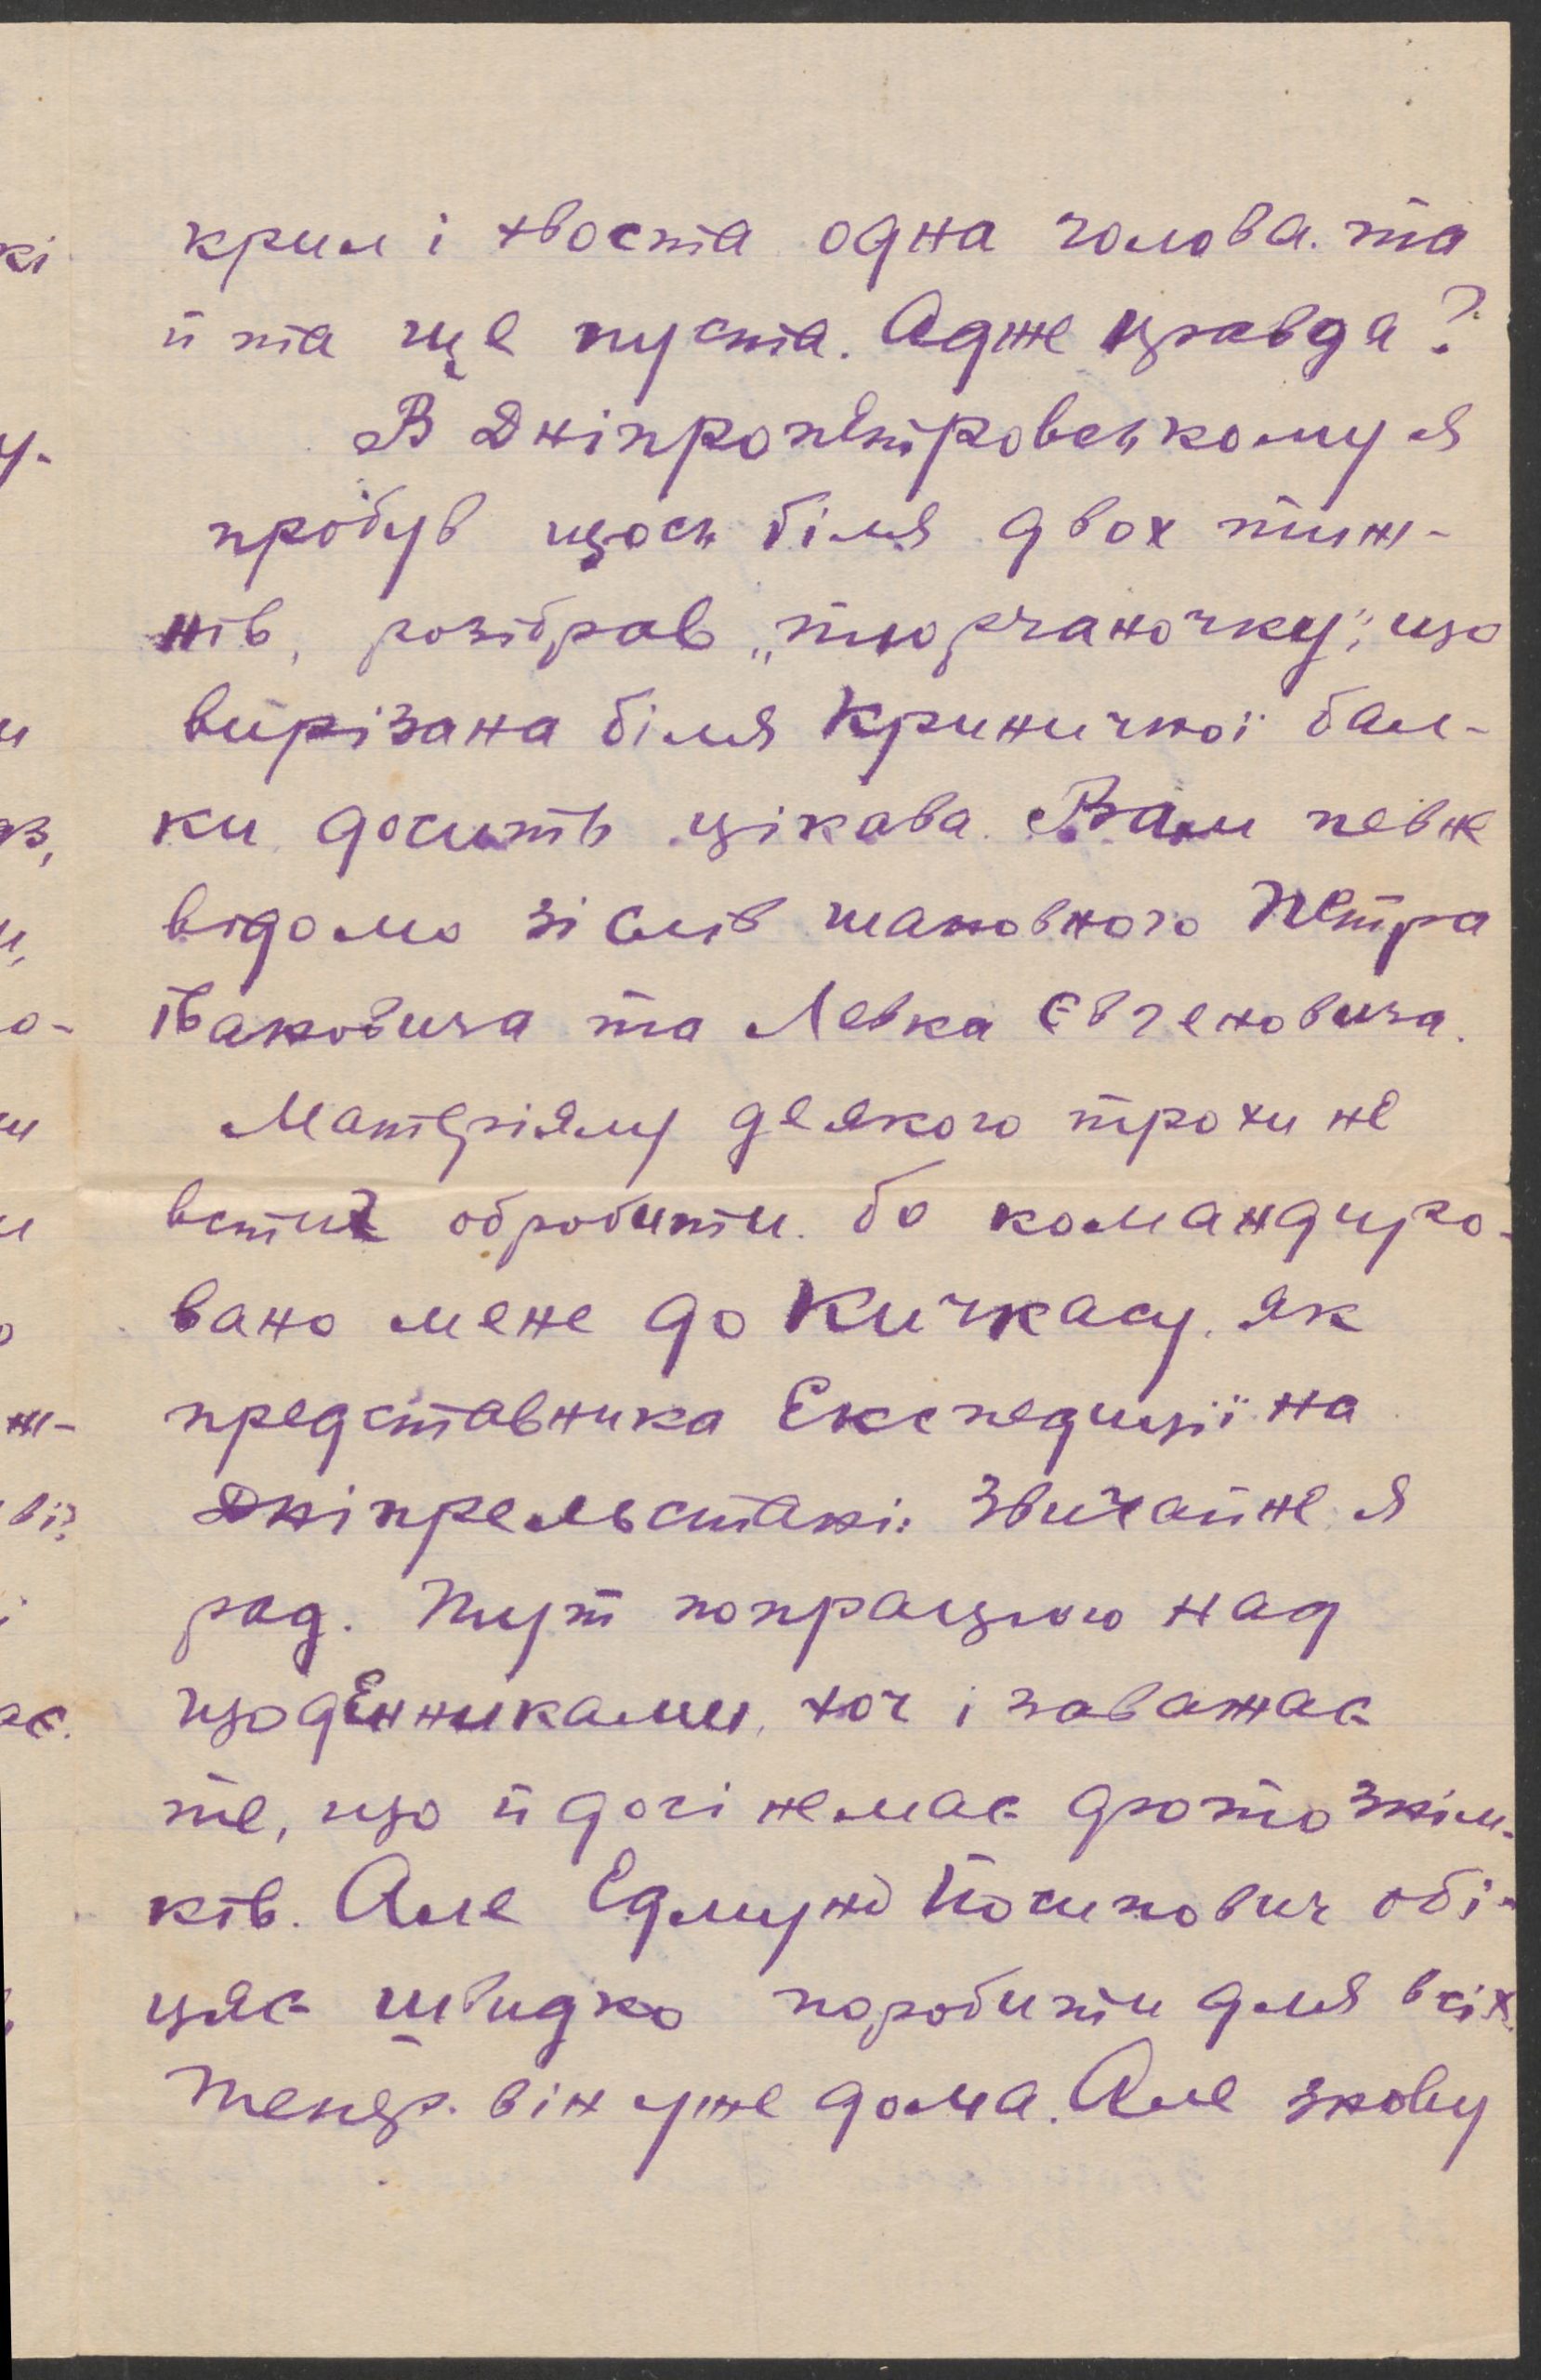 крил і хвоста одна голова. та
й та ще пуста. Адже правда?
В Дніпропетровському я
пробув щось біля двох тиж-
нів, розібрав „тюрчаночку", що
вирізана біля Криничної бал-
ки досить цікава. Вам певне
відомо зі слів шановного Петра
Івановича та Левка Євгеновича.
Матеріялу деякого трохи не
встиг обробити. бо командиро-
вано мене до Кичкасу, як
представника Експедиції на
Дніпрельстані. Звичайне я
рад. Тут попрацюю над
щоденниками, хоч і заважає
те, що й досі немає фотознім-
ків. Але Едмунд Йосипович обі-
цяє швидко поробити для всіх.
Тепер. він уже дома. Але знову
кі
у.
и
яз,
и,
о-
и
о
ж-
ві?
і
ає.